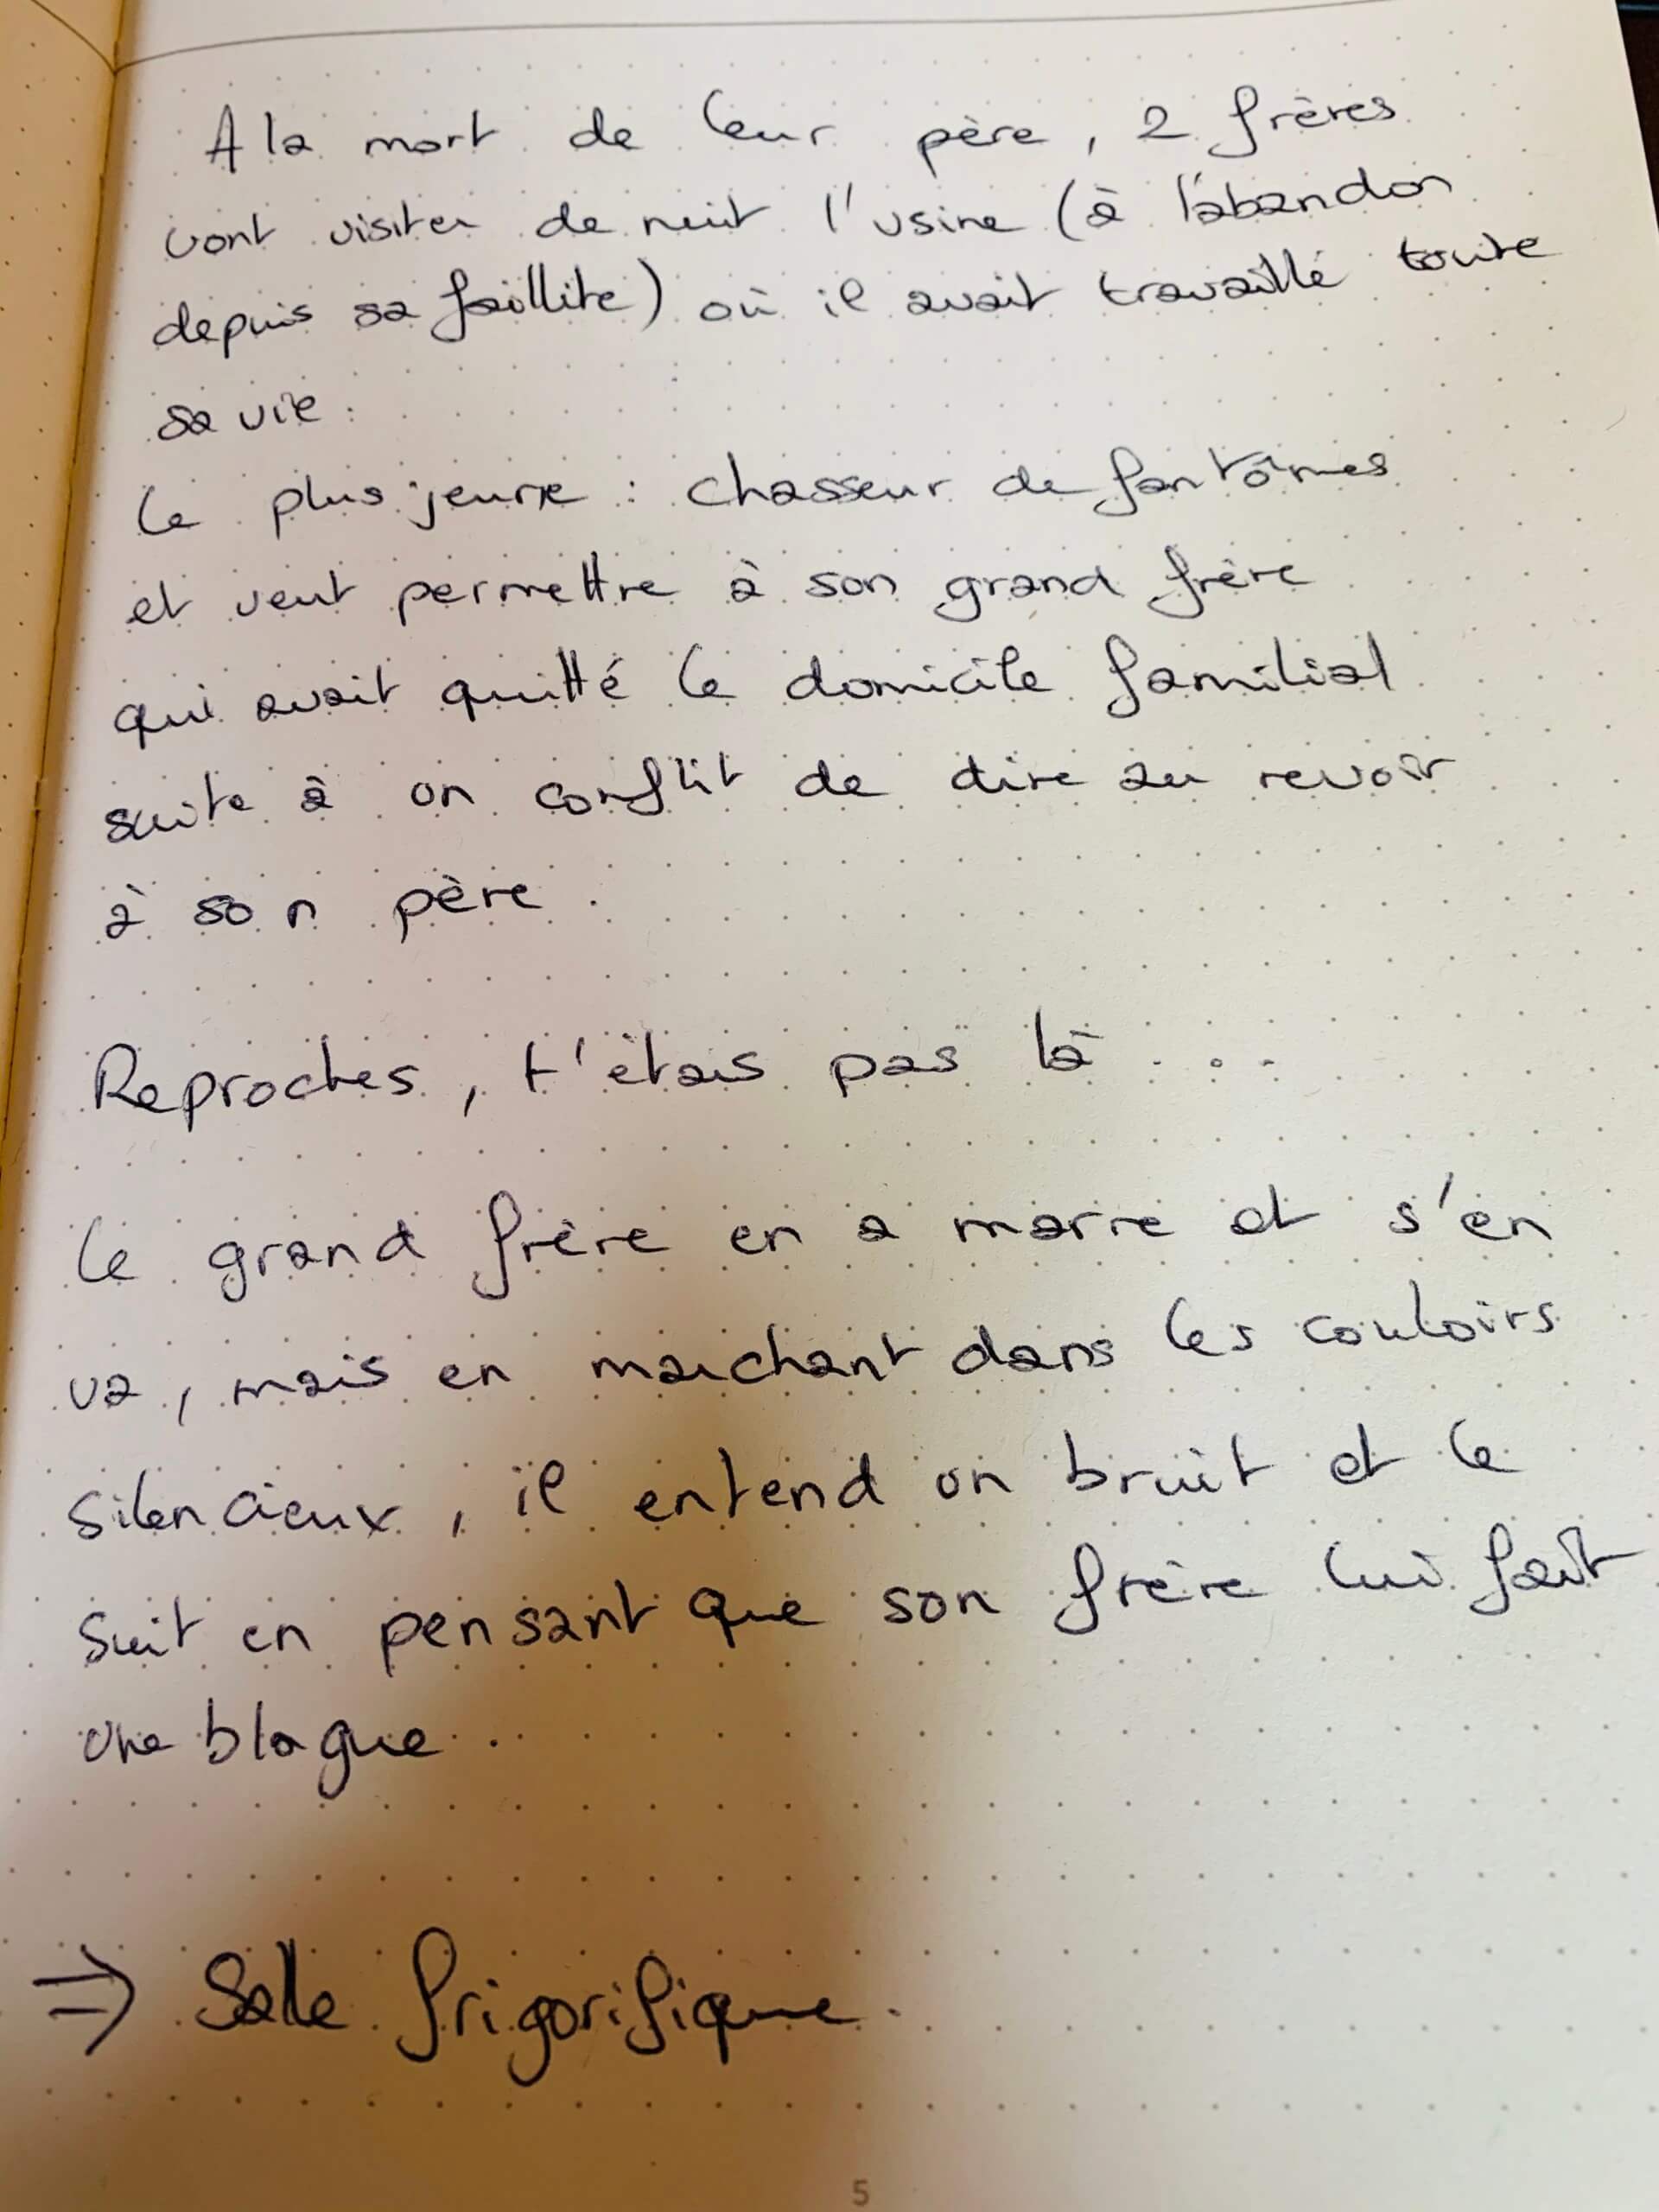 A la mort de leur père, 2 frères
vont visiter de nuit l'usine (à l'abandon
depuis sa faillite) où il avait travaillé toute
sa vie.
Le plus jeune : chasseur de fantômes
et veut permettre à son grand frère
qui avait quitté le domicile familial
suite à un conflit de dire au revoir
à son père.
Reproches, t'étais pas là ...
Le grand frère en a marre et s'en
va, mais en marchant dans les couloirs
silencieux, il entend un bruit et le
suit en pensant que son frère lui fait
une blague..
⇒ Salle frigorifique.
5